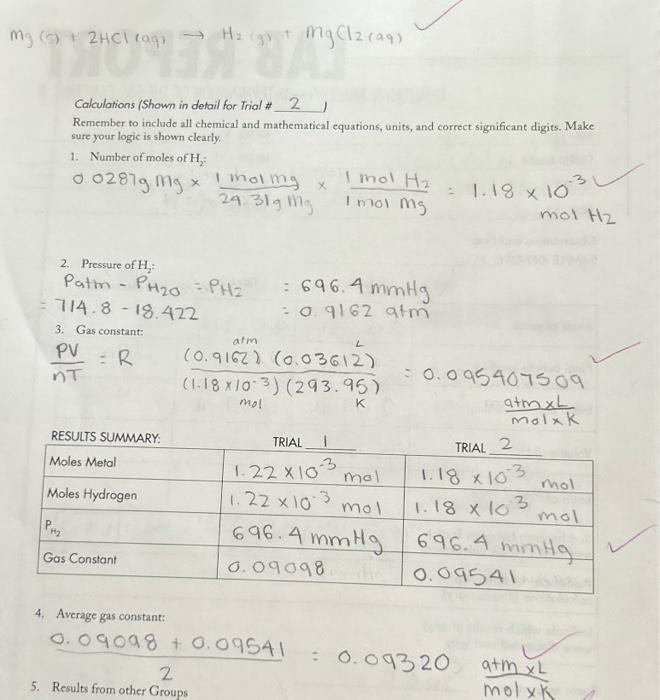 Mg(s) + 2HCl(aq) → H2(g) + MgCl2(aq)
Calculations (Shown in detail for Trial # 2 )
Remember to include all chemical and mathematical equations, units, and correct significant digits. Make
sure your logic is shown clearly.
1. Number of moles of H₂:
0.0287g Mg × 1 mol Mg / 24.31g Mg × 1 mol H2 / 1 mol Mg = 1.18 × 10^-3 mol H2
2. Pressure of H₂:
Patm - PH2O = PH2 = 696.4 mmHg
= 714.8 - 18.422 = 0.9162 atm
3. Gas constant:
PV / nT = R (0.9162) (0.03612) / (1.18×10^-3) (293.95) = 0.095407509 atm×L / mol×K
atm L
mol K
RESULTS SUMMARY: TRIAL 1 TRIAL 2
Moles Metal 1.22 × 10^-3 mol 1.18 × 10^-3 mol
Moles Hydrogen 1.22 × 10^-3 mol 1.18 × 10^-3 mol
PH₂ 696.4 mmHg 696.4 mmHg
Gas Constant 0.09098 0.09541
4. Average gas constant:
0.09098 + 0.09541 / 2 = 0.09320 atm×L / mol×K
5. Results from other Groups